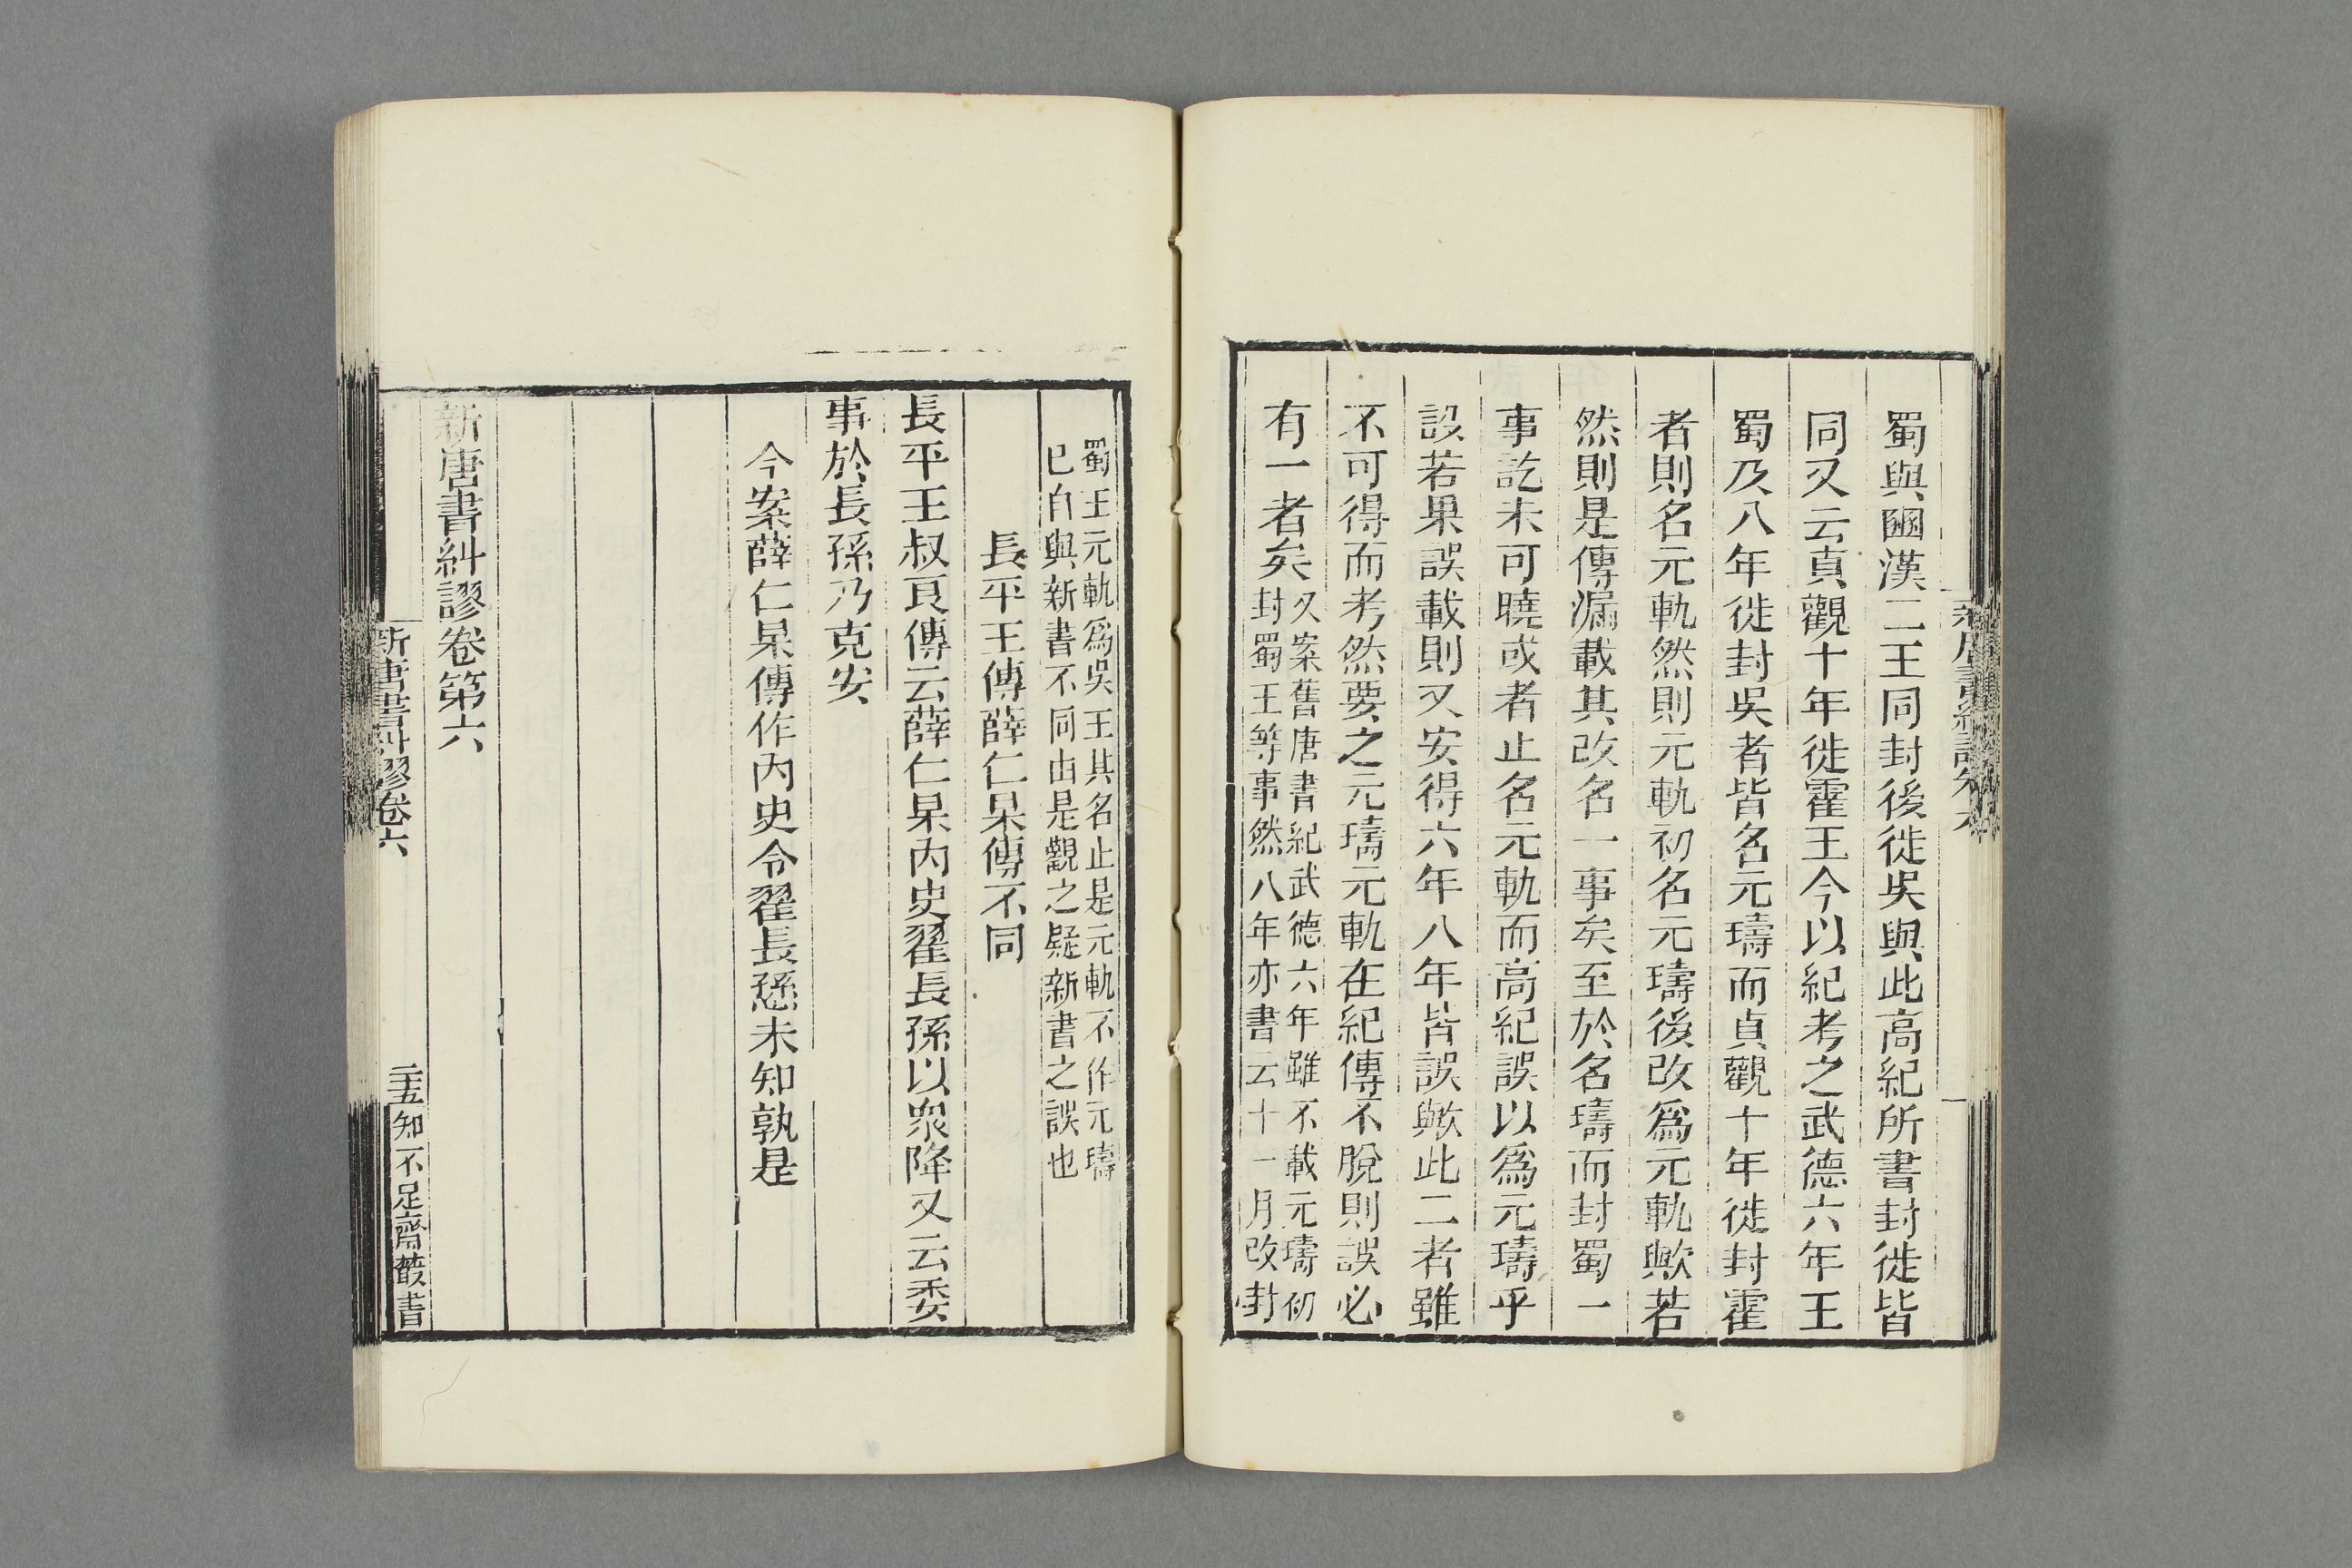 蜀與豳漢二王同封後徙吳與此高紀所書封徙皆
同又云貞觀十年徙霍王今以紀考之武德六年王
蜀及八年徙封吳者皆名元璹而貞觀十年徙封霍
者則名元軌然則元軌初名元璹後改爲元軌歟若
然則是傳漏載其改名一事矣至於名璹而封蜀一
事訖未可曉或者止名元軌而高紀誤以爲元璹乎
設若果誤載則又安得六年八年皆誤歟此二者雖
不可得而考然要之元璹元軌在紀傳不脫則誤必
有一者矣
又案舊唐書紀武德六年雖不載元璹初
封蜀王等事然八年亦書云十一月改封
蜀王元軌爲吳王其名止是元軌不作元璹
已自與新書不同由是觀之疑新書之誤也
長平王傳薛仁杲傳不同
長平王叔良傳云薛仁杲內史翟長孫以衆降又云委
事於長孫乃克安
今案薛仁杲傳作內史令翟長愻未知孰是
新唐書糾謬卷第六
新唐書糾謬卷六
二十五
知不足齋叢書